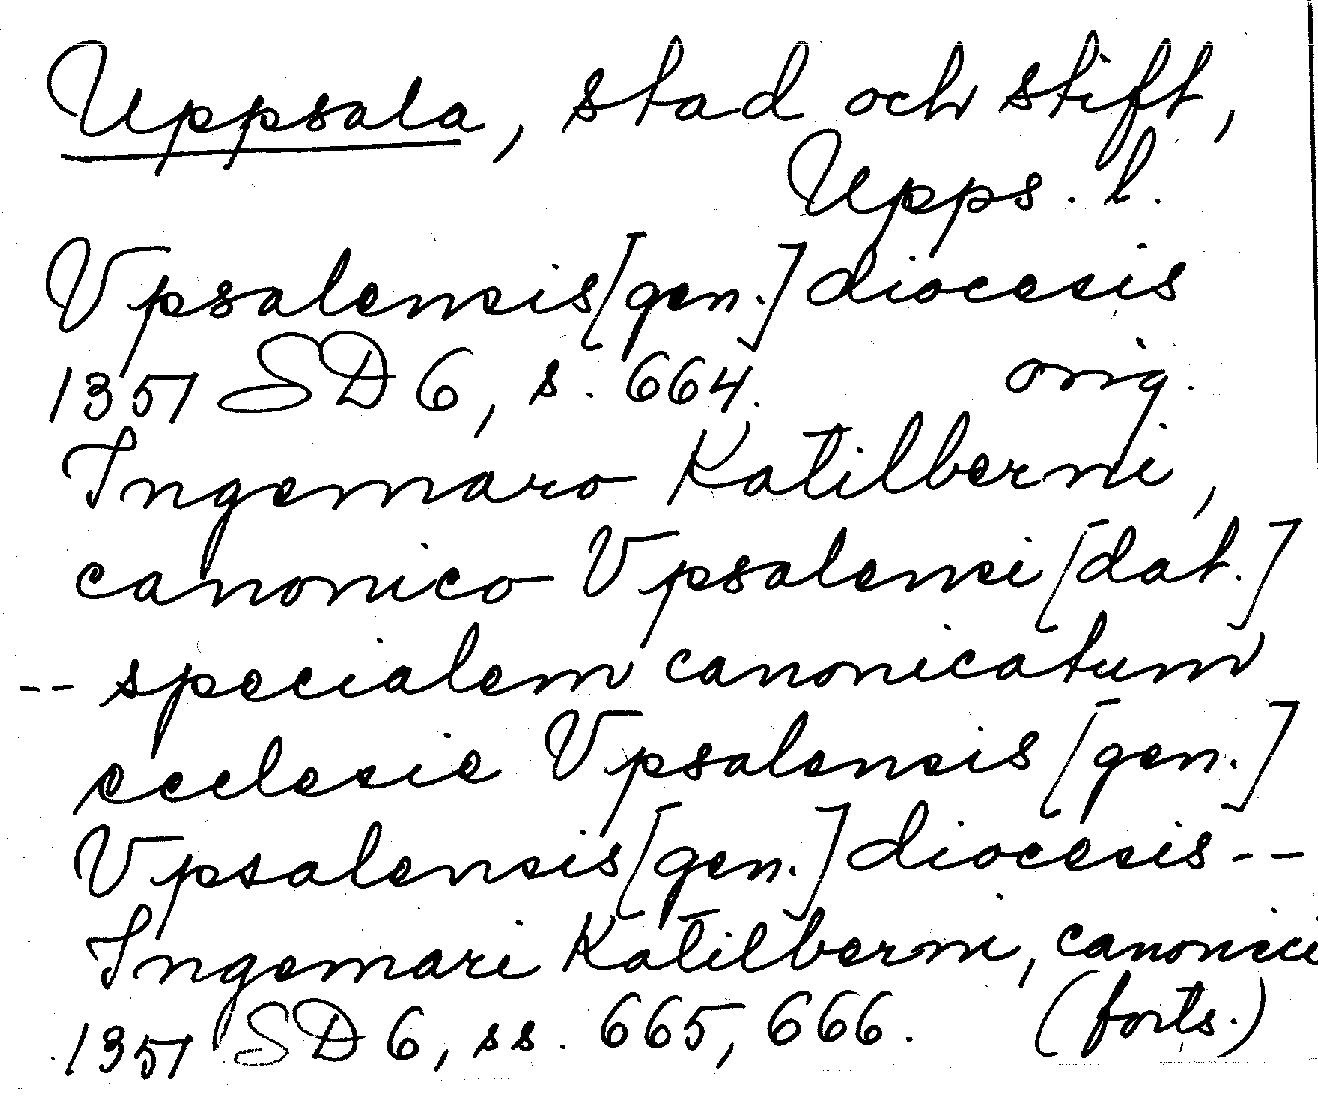 Uppsala, stad och stift,
Upps. l.
Vpsalensis [gen.] diocesis
1351 SD 6, s. 664. orig.
Ingemaro Katilberni,
canonico Vpsalensi [dat.]
-- specialem canonicatum
ecclesie Vpsalensis [gen.]
Vpsalensis [gen.] diocesis --
Ingemari Katilberni, canonici
1351 SD 6, ss. 665, 666. (forts.)